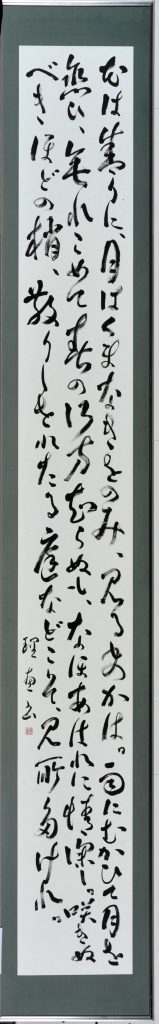 花は盛りに、月はくまなきをのみ、見るものかは。雨にむかひて月を
恋ひ、垂れこめて春の行方知らぬも、なほあはれに情深し。咲きぬ
べきほどの梢、散りしをれたる庭などこそ、見所多けれ。